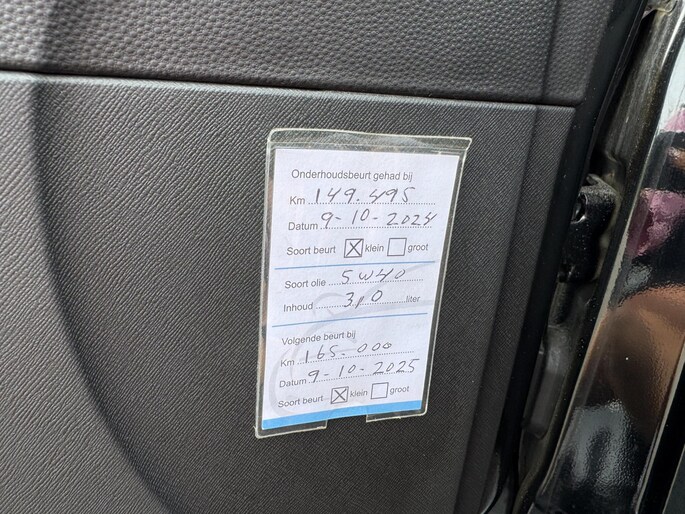 Onderhoudsbeurt gehad bij
Km 149.495
Datum 9-10-2024
Soort beurt ☒ klein ☐ groot
Soort olie 5W40
Inhoud 3,0 liter
Volgende beurt bij
Km 165.000
Datum 9-10-2025
Soort beurt ☒ klein ☐ groot